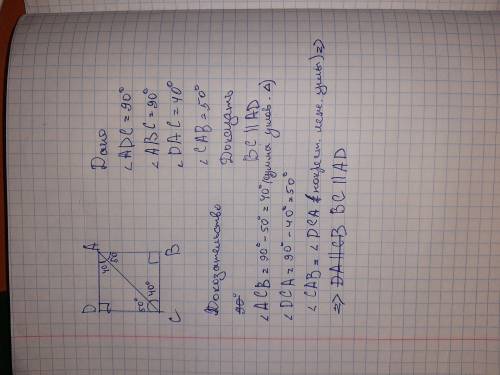 Дано
∠ADC = 90°
∠ABC = 90°
∠DAC = 40°
∠CAB = 50°
Доказать
BC || AD
D A
40° 50°
50° 40°
C B
Доказательство
90°
∠ACB = 90° - 50° = 40° (сумма углов. Δ)
∠DCA = 90° - 40° = 50°
∠CAB = ∠DCA (накрест. леж. углы) =>
=> DA || CB BC || AD